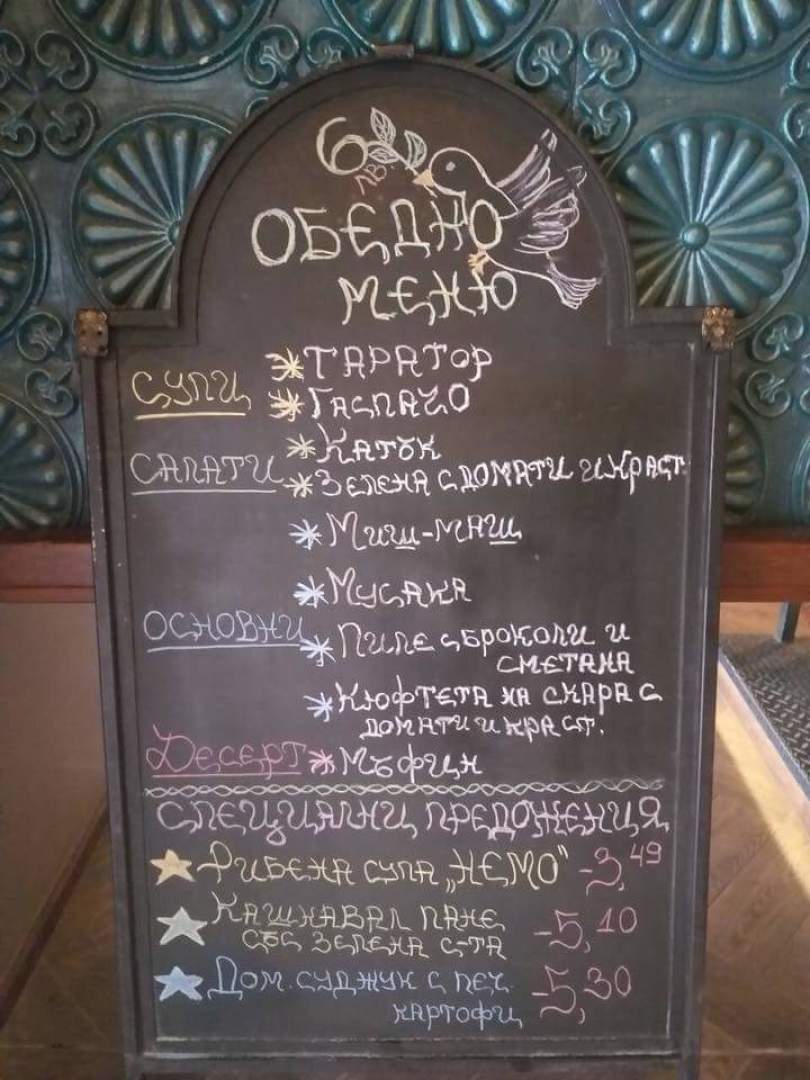 6 лв.
ОБЕДНО
МЕНЮ
СУПИ
*ТАРАТОР
*ГАСПАЧО
САЛАТИ
*КАТЪК
*ЗЕЛЕНА С ДОМАТИ И КРАСТ.
*МИШ-МАШ
*МУСАКА
ОСНОВНИ
*ПИЛЕ С БРОКОЛИ И
СМЕТАНА
*КЮФТЕТА НА СКАРА С
ДОМАТИ И КРАСТ.
ДЕСЕРТ *МЪФИН
СПЕЦИАЛНИ ПРЕДОЖЕНИЯ
РИБЕНА СУПА „НЕМО" -3,49
КАШКАВАЛ ПАНЕ
СЪС ЗЕЛЕНА С-ТА -5,10
ДОМ. СУДЖУК С ПЕЧ. -5,30
КАРТОФИ